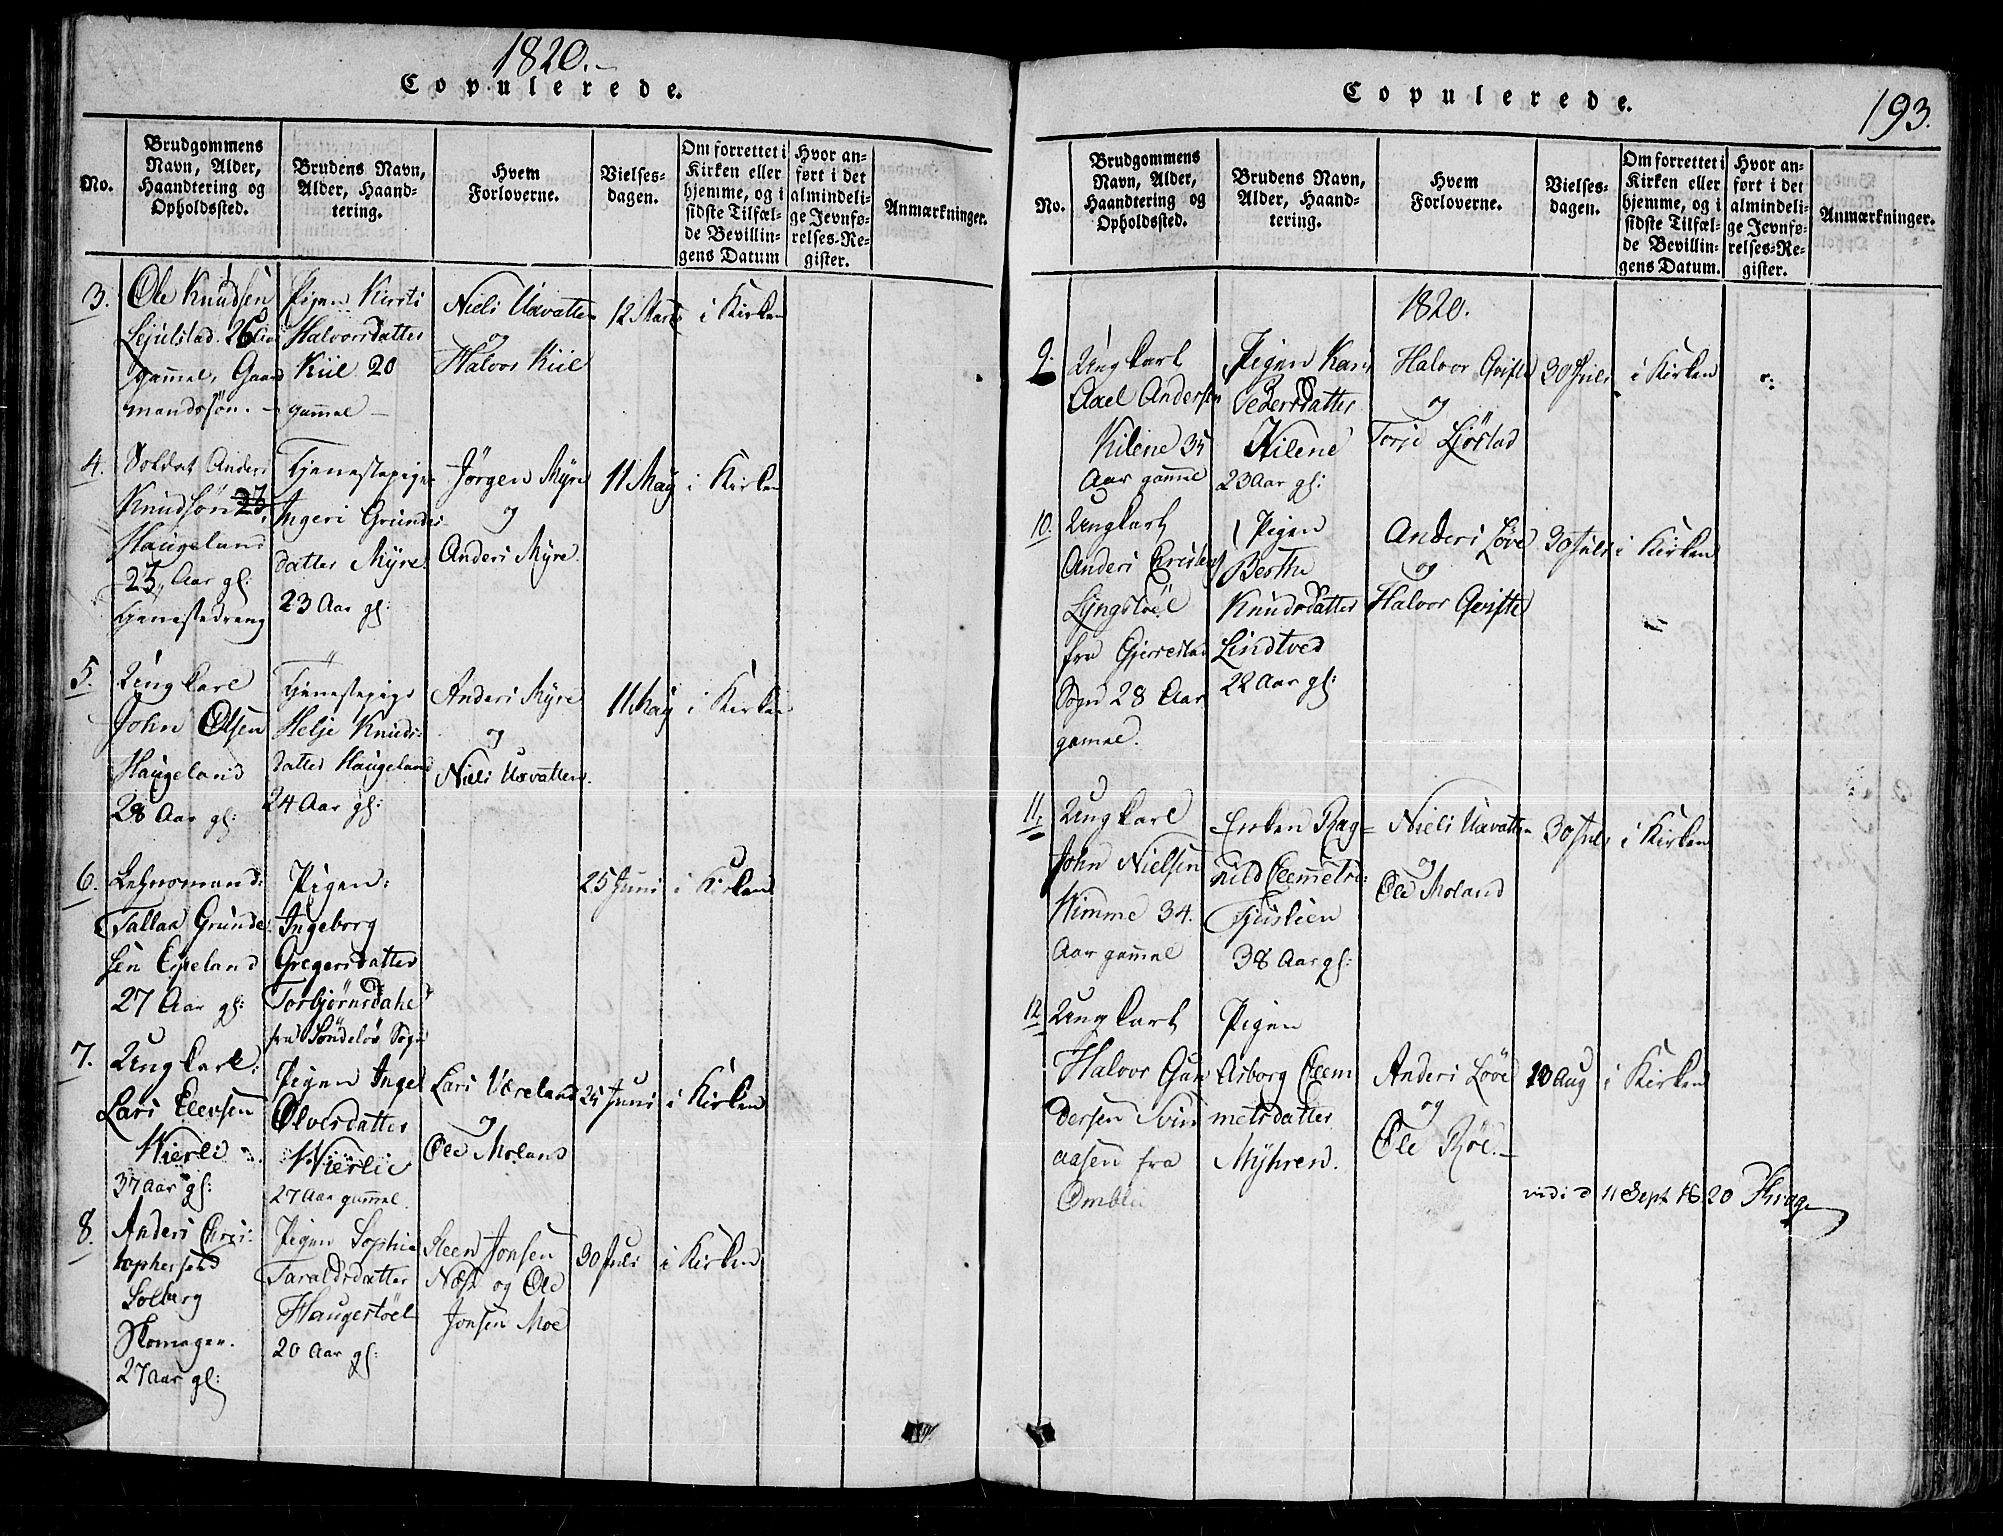 1820.
Copulerede.
No.
Brudgommens
Navn, Alder,
Haandtering og
Opholdssted.
Brudens Navn,
Alder, Haand-
tering.
Hvem
Forloverne.
Vielses-
dagen.
Om forrettet i
Kirken eller
hjemme, og i
sidste Tilfæl-
de Bevillin-
gens Datum
Hvor an-
ført i det
almindeli-
ge Jevnfø-
relses-Re-
gister.
Anmærkninger.
3.
Ole Knudsen
26
gammel, Gaard
mandssøn. –
Pigen Kirsti
Halvorsdatter
Kiil 20
gammel –
Niels Uxvatten
og
Halvor Kiil
12 Marts
i Kirken
4.
Soldat Anders
Knudsøn
Haugeland
Aar gl:
Tjenestedreng
Tjenestepige
Ingeri Grunds
datter Myre
23 Aar gl:
Jørgen Myre
og
Anders Myre.
11 May
i Kirken
5.
Ungkarl
John Olsen
Haugeland
28 Aar gl:
Tjenestepige
Helje Knuds-
datter Haugeland
24 Aar gl:
Anders Myre
og
Niels Uxvatten.
11 May
i Kirken
6.
Lehnsmand:
Tallak Grunde
sen Egeland
27 Aar gl:
Pigen:
Ingeborg
Gregersdatter
Torbjørnsdahl
fra Söndeløv Sogn
25 Juni
i Kirken
7.
Ungkarl:
Lars Elevsen
Wierli
37 Aar gl:
Pigen Inger
Olversdatter
Wierlie
27 Aar gammel.
Lars Væreland
og
Ole Moland
25 Juni
i Kirken
8.
Anders Chris-
tophersen
Solberg
Skomager.
27 Aar gl:
Pigen Sophie
Taraldsdatter
Haugestöel
20 Aar gl:
Steen Jonsen
Næs og Ole
Jonsen Moe
30 Juli
i Kirken
193.
Copulerede.
No.
Brudgommens
Navn, Alder,
Haandtering og
Opholdssted.
Brudens Navn,
Alder, Haand-
tering.
Hvem
Forloverne.
Vielses-
dagen.
Om forrettet i
Kirken eller
hjemme, og i
sidste Tilfæl-
de Bevillin-
gens Datum.
Hvor an-
ført i det
almindeli-
ge Jevnfø-
relses-Re-
gister.
Anmærkninger.
1820.
9.
Ungkarl
Axel Andersen
Kilene 35
Aar gammel
Pigen Kari
Pedersdatter
Kilene
23 Aar gl:
Halvor Qvifte
og
Torje
30 Juli
i Kirken
10.
Ungkarl
Anders
Lyngstöel
fra Gjerrestad
Sogn 28 Aar
gamel.
Pigen
Berthe
Knudsdatter
Lindtved
22 Aar gl:
Anders Løve
og
Halvor Qvifte
30 Juli
i Kirken
11.
Ungkarl
John Nielsen
Wimme 34.
Aar gammel
Enken Rag-
nild Clemmets:
38 Aar gl:
Niels Uxvatten
og
Ole Moland
30 Juli
i Kirken
12.
Ungkarl
Halvor Gun
dersen Svin
aasen fra
Omblie
Pigen
Asborg Clem
metsdatter
Myhren.
Anders Løve
og
Ole Røe. –
Aug
i Kirken
vidi d 11 Sept 1820